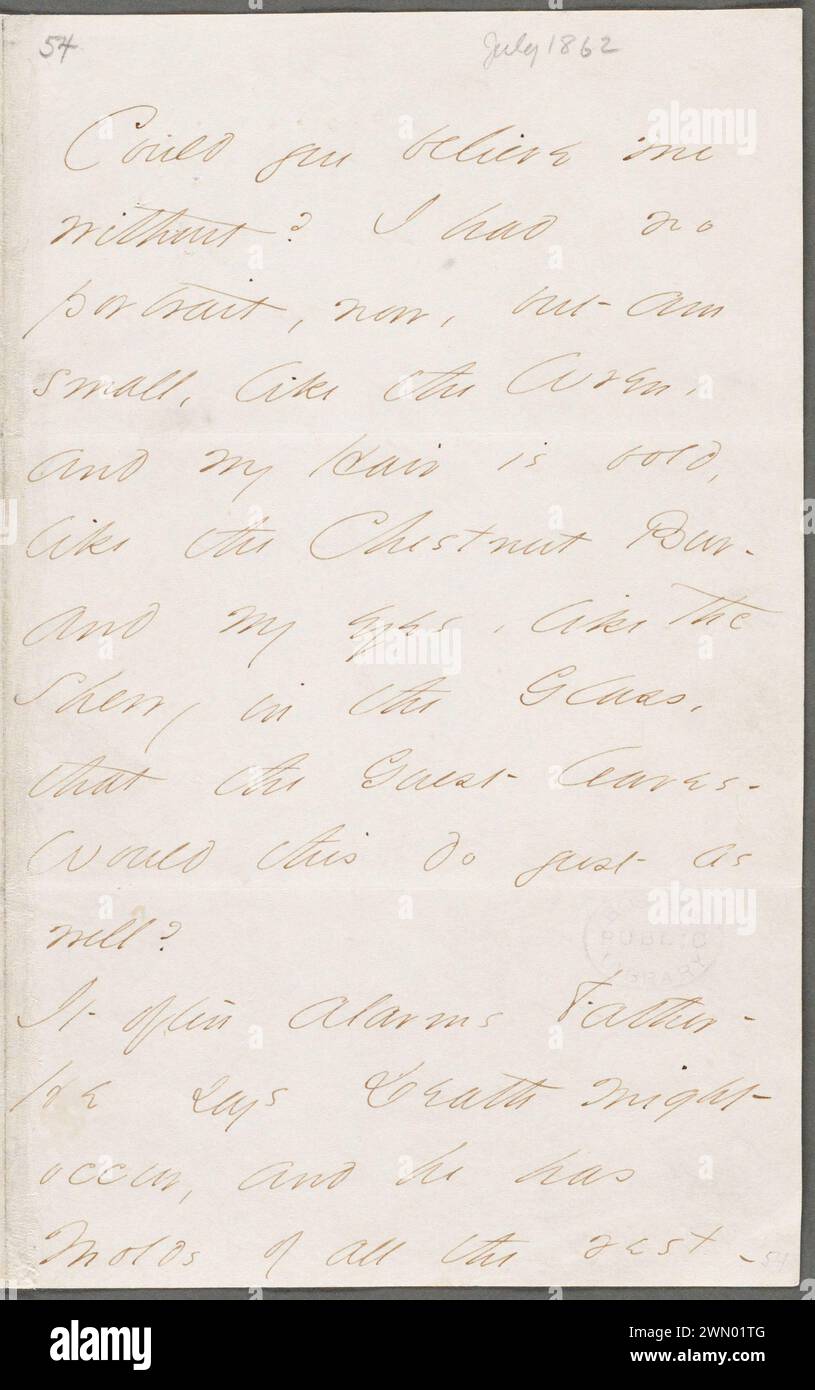 54
July 1862
Could you believe me
without? I had no
portrait, now, but am
small, like the Wren,
and my Hair is bold,
like the Chestnut Bur -
and my eyes, like the
Sherry in the Glass,
that the Guest leaves -
Would this do just as
well?
It often alarms Father -
He says Death might
occur, and he has
Molds of all the rest -
54
PUBLIC
LIBRARY
alamy
alamy
alamy
Image ID: 2WN01TG
www.alamy.com